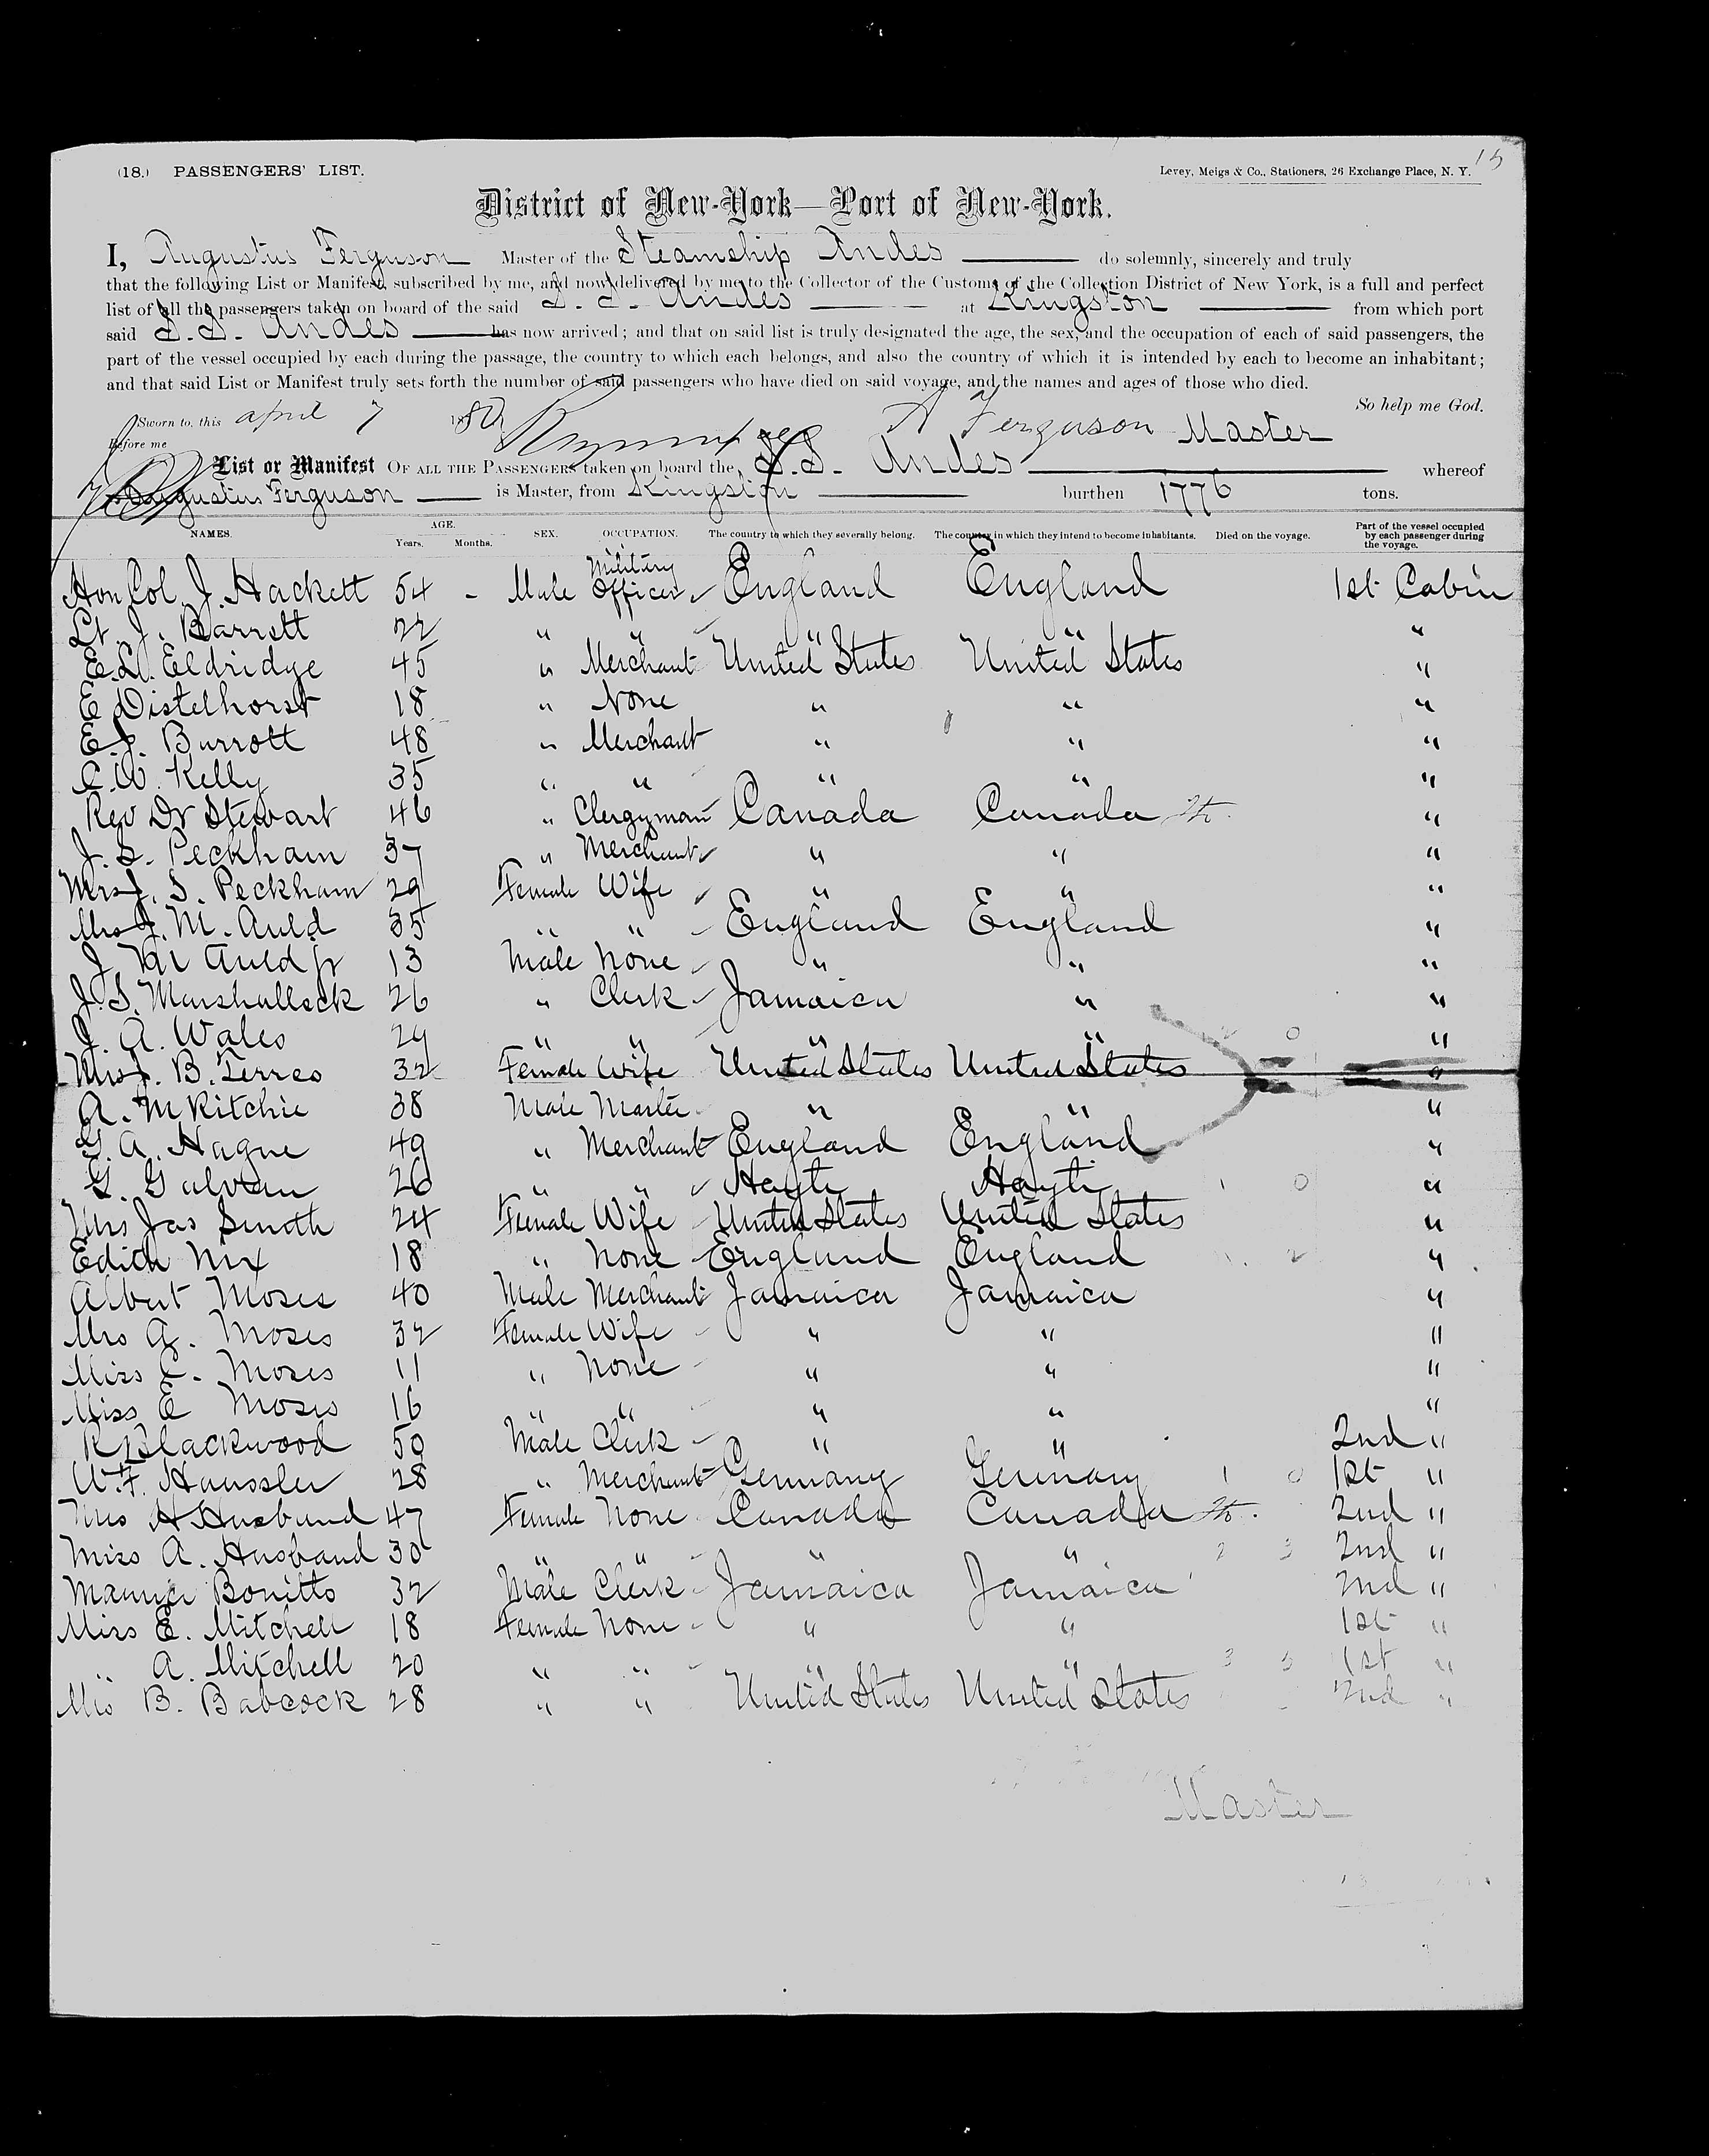 15
(18.) PASSENGERS' LIST. Levey, Meigs & Co., Stationers, 26 Exchange Place, N. Y.
District of New-York—Port of New-York.
I, Augustus Ferguson Master of the Steamship Andes do solemnly, sincerely and truly
that the following List or Manifest, subscribed by me, and now delivered by me to the Collector of the Customs of the Collection District of New York, is a full and perfect
list of all the passengers taken on board of the said S.S. Andes at Kingston from which port
said S.S. Andes has now arrived; and that on said list is truly designated the age, the sex, and the occupation of each of said passengers, the
part of the vessel occupied by each during the passage, the country to which each belongs, and also the country of which it is intended by each to become an inhabitant;
and that said List or Manifest truly sets forth the number of said passengers who have died on said voyage, and the names and ages of those who died.
So help me God.
Sworn to, this april 7 1880 A Ferguson Master
Before me
List or Manifest OF ALL THE PASSENGERS taken on board the S.S. Andes whereof
Augustus Ferguson is Master, from Kingston burthen 1776 tons.
NAMES. AGE. Years. Months. SEX. OCCUPATION. The country to which they severally belong. The country in which they intend to become inhabitants. Died on the voyage. Part of the vessel occupied by each passenger during the voyage.
Hon Col. J. Hackett 54 - Male Military Officer England England 1st Cabin
Lt. J. Barrett 22 " " " " "
E.L. Eldridge 45 " Merchant United States United States "
E Distelhorst 18 " None " " "
E.J. Burrott 48 " Merchant " " "
C.W. Kelly 35 " " " " "
Rev Dr Stewart 46 " Clergyman Canada Canada "
J. S. Peckham 37 " Merchant " " "
Mrs J. S. Peckham 29 Female Wife " " "
Mrs J. M. Auld 35 " " England England "
J. M Auld Jr 13 Male None " " "
J. S. Marshalleck 26 " Clerk Jamaica " "
J. A. Wales 29 " " " " "
Mrs J. B. Terres 32 Female Wife United States United States "
A. McRitchie 38 Male " " "
G. A. Hague 49 " Merchant England England "
G. Galvan 26 " " Hayti Hayti "
Mrs Jas Smith 24 Female Wife United States United States "
Edith Nix 18 " None England England "
Albert Moses 40 Male Merchant Jamaica Jamaica "
Mrs A. Moses 32 Female Wife " " "
Miss C. Moses 11 " None " " "
Miss E Moses 16 " " " " "
R Blackwood 50 Male Clerk " " 2nd "
W. F. Haussler 28 " Merchant Germany Germany 1st "
Mrs H Husband 47 Female None Canada Canada 2nd "
Miss A. Husband 30 " " " " 2nd "
Bonitto 32 Male Clerk Jamaica Jamaica 2nd "
Miss E. Mitchell 18 Female None " " 1st "
" A. Mitchell 20 " " " " 1st "
Mrs B. Babcock 28 " " United States United States 2nd "
Master